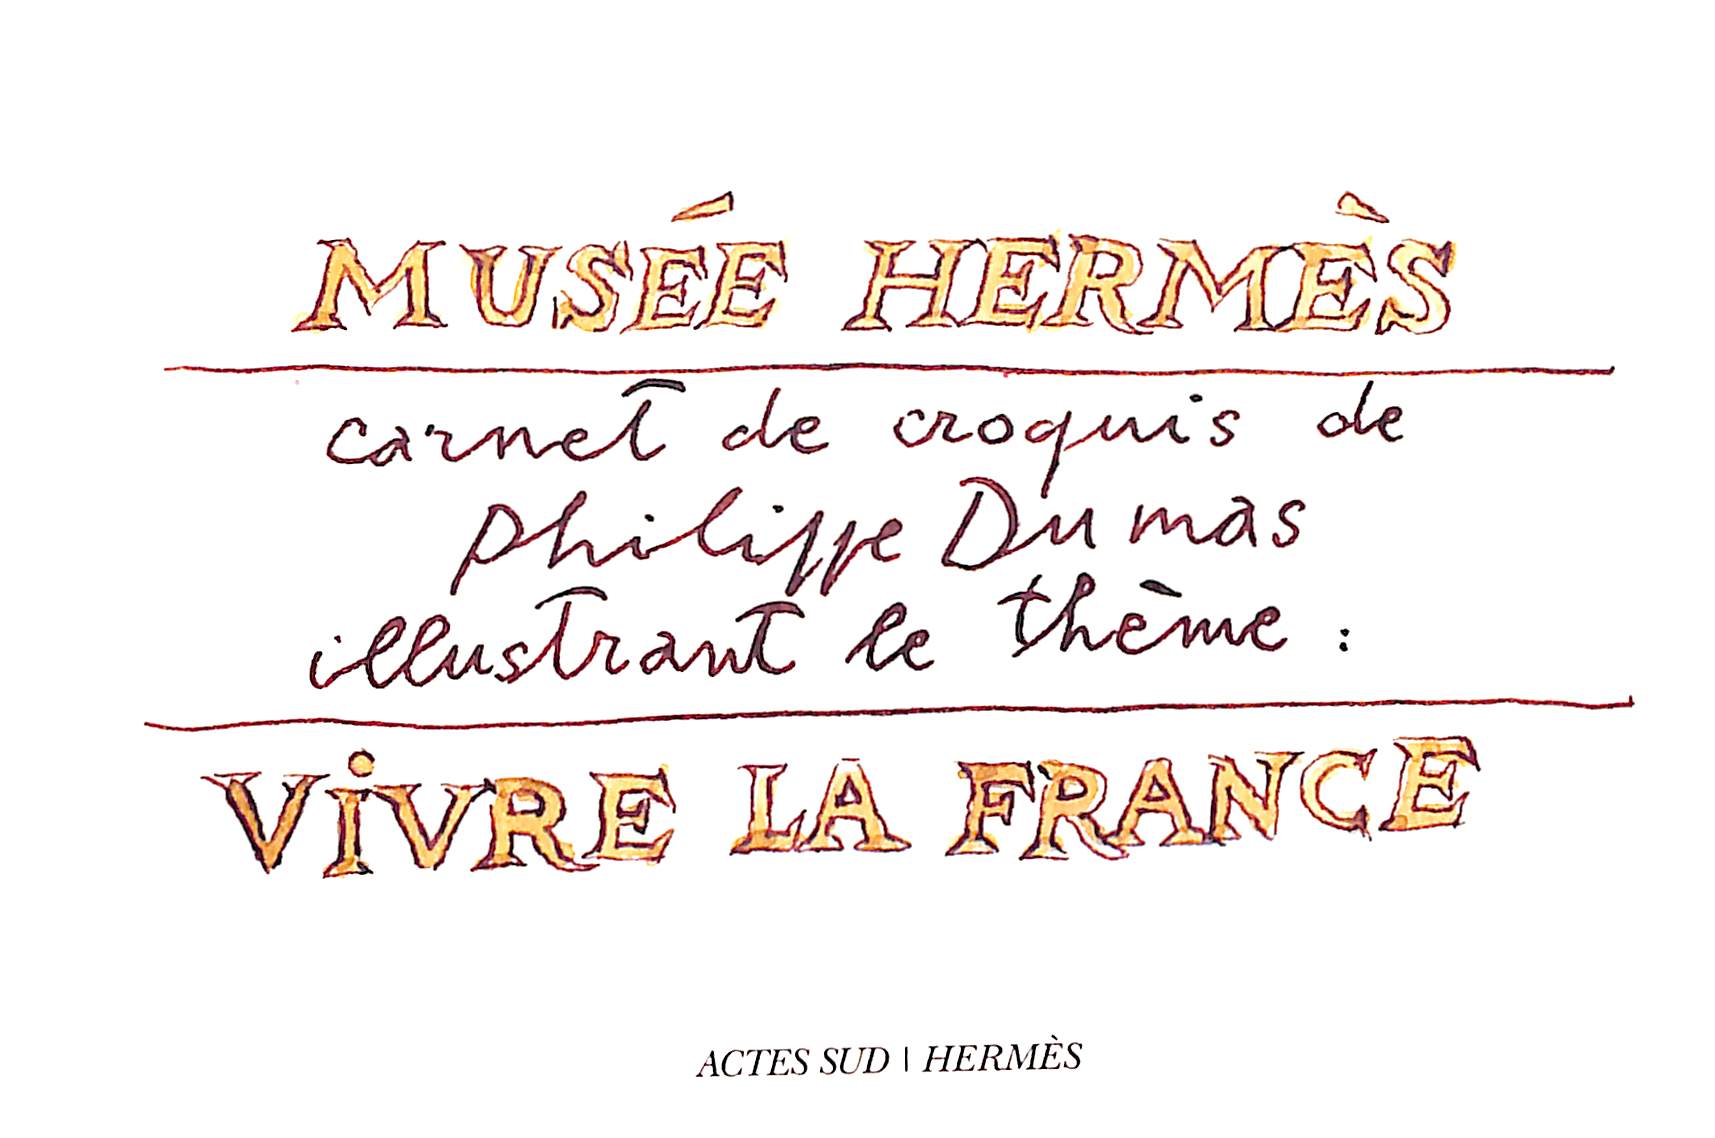 MUSÉE HERMÈS
carnet de croquis de
Philippe Dumas
illustrant le thème :
ViVRE LA FRANCE
ACTES SUD | HERMÈS